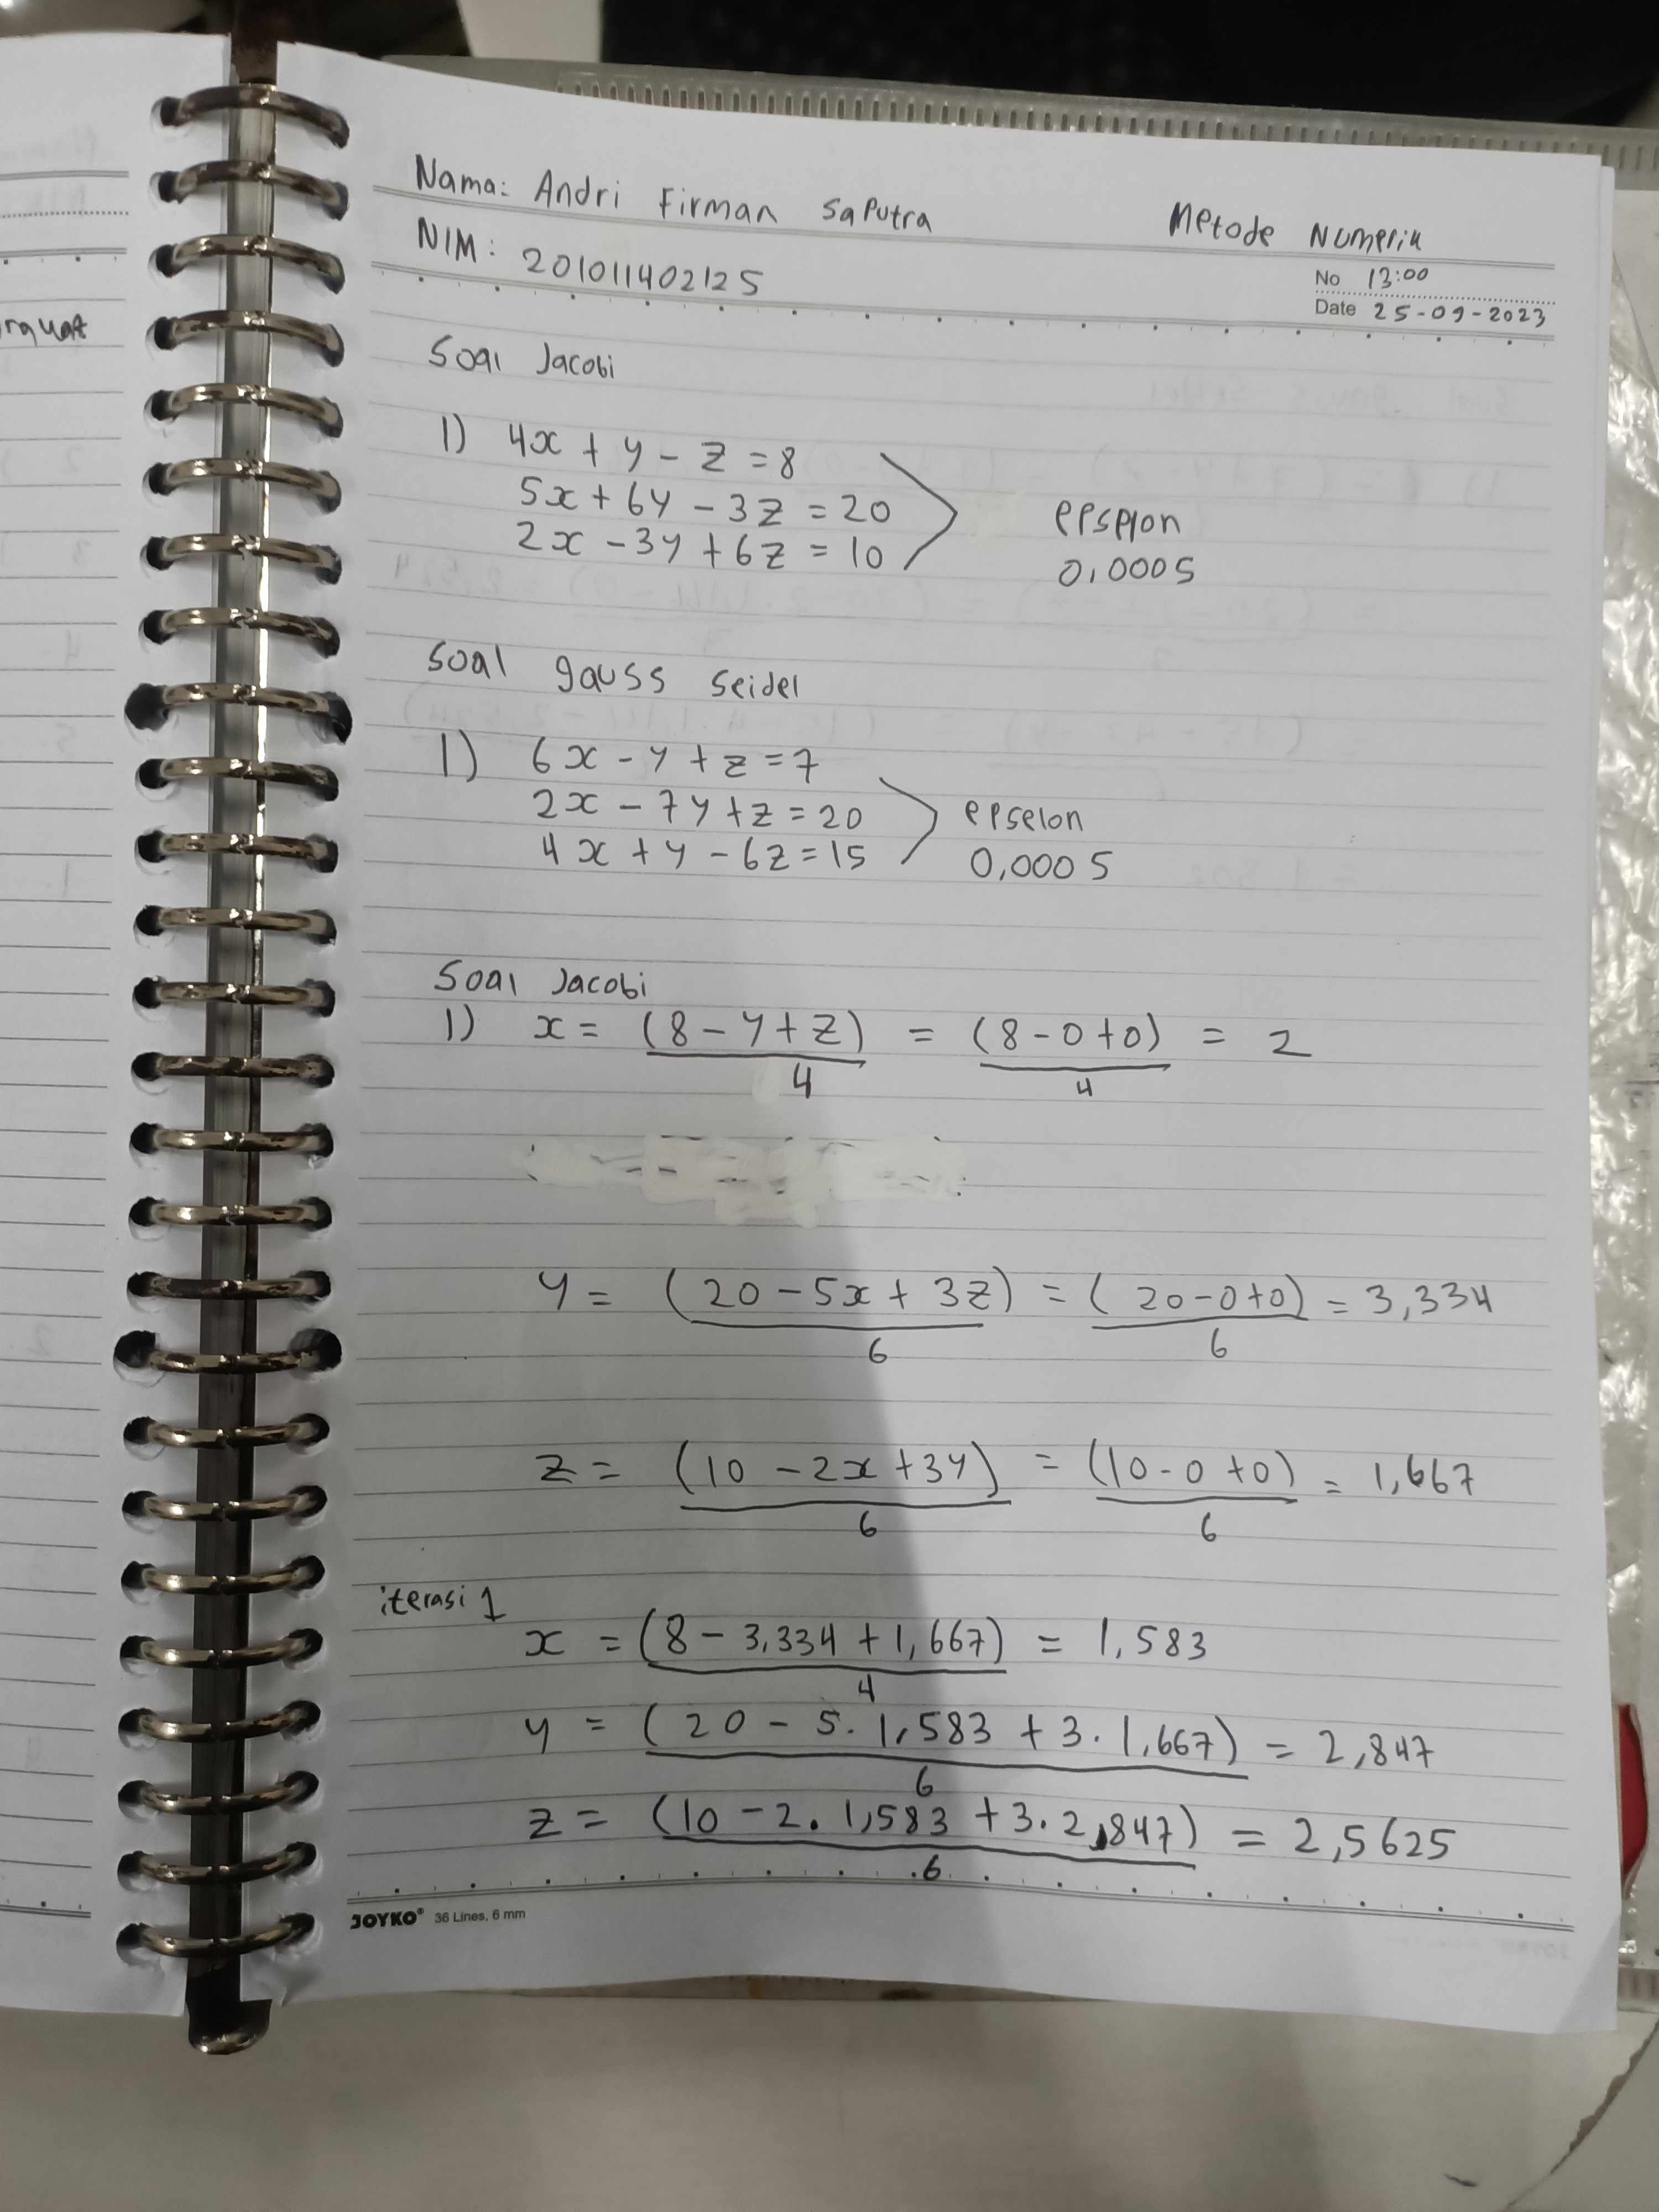 Nama: Andri Firman Saputra
Metode Numerik
NIM: 201011402125
No 13:00
Date 25-09-2023
Soal Jacobi
1) 4x + y - z = 8
5x + 6y - 3z = 20
2x - 3y + 6z = 10
0,0005
Soal gauss seidel
1) 6x - y + z = 7
2x - 7y + z = 20
4x + y - 6z = 15
epselon
0,0005
Soal Jacobi
1) x = (8 - y + z) / 4 = (8 - 0 + 0) / 4 = 2
y = (20 - 5x + 3z) / 6 = (20 - 0 + 0) / 6 = 3,334
z = (10 - 2x + 3y) / 6 = (10 - 0 + 0) / 6 = 1,667
iterasi 1
x = (8 - 3,334 + 1,667) / 4 = 1,583
y = (20 - 5. 1,583 + 3. 1,667) / 6 = 2,847
z = (10 - 2. 1,583 + 3. 2,847) / 6 = 2,5625
JOYKO® 36 Lines, 6 mm